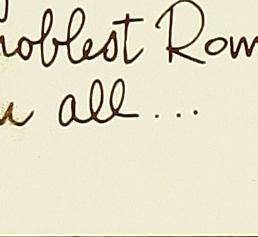 noblest Rom
all...